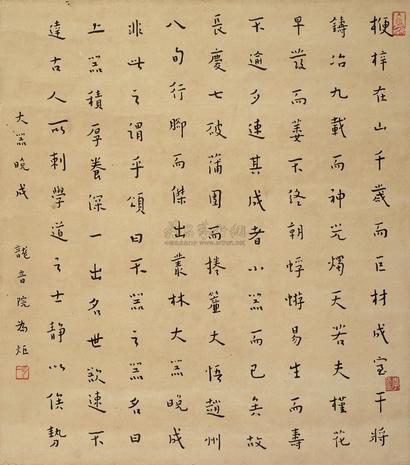 梗梓在山千歲而巨材成宝干將
鑄冶九載而神光燭天若夫槿花
早發而萎不終朝蜉蝣易生而壽
不逾夕速其成者小器而已矣故
長慶七破蒲團而捲簾大悟趙州
八旬行腳而傑出叢林大器晚成
非此之謂乎頌曰不器之器名曰
上器積厚養深一出名世欲速不
達古人所刺學道之士靜以俟勢
大器晚成 龍音院為炬